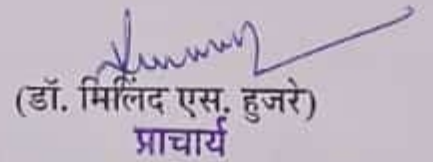 (डॉ. मिलिंद एस. हुजरे)
प्राचार्य